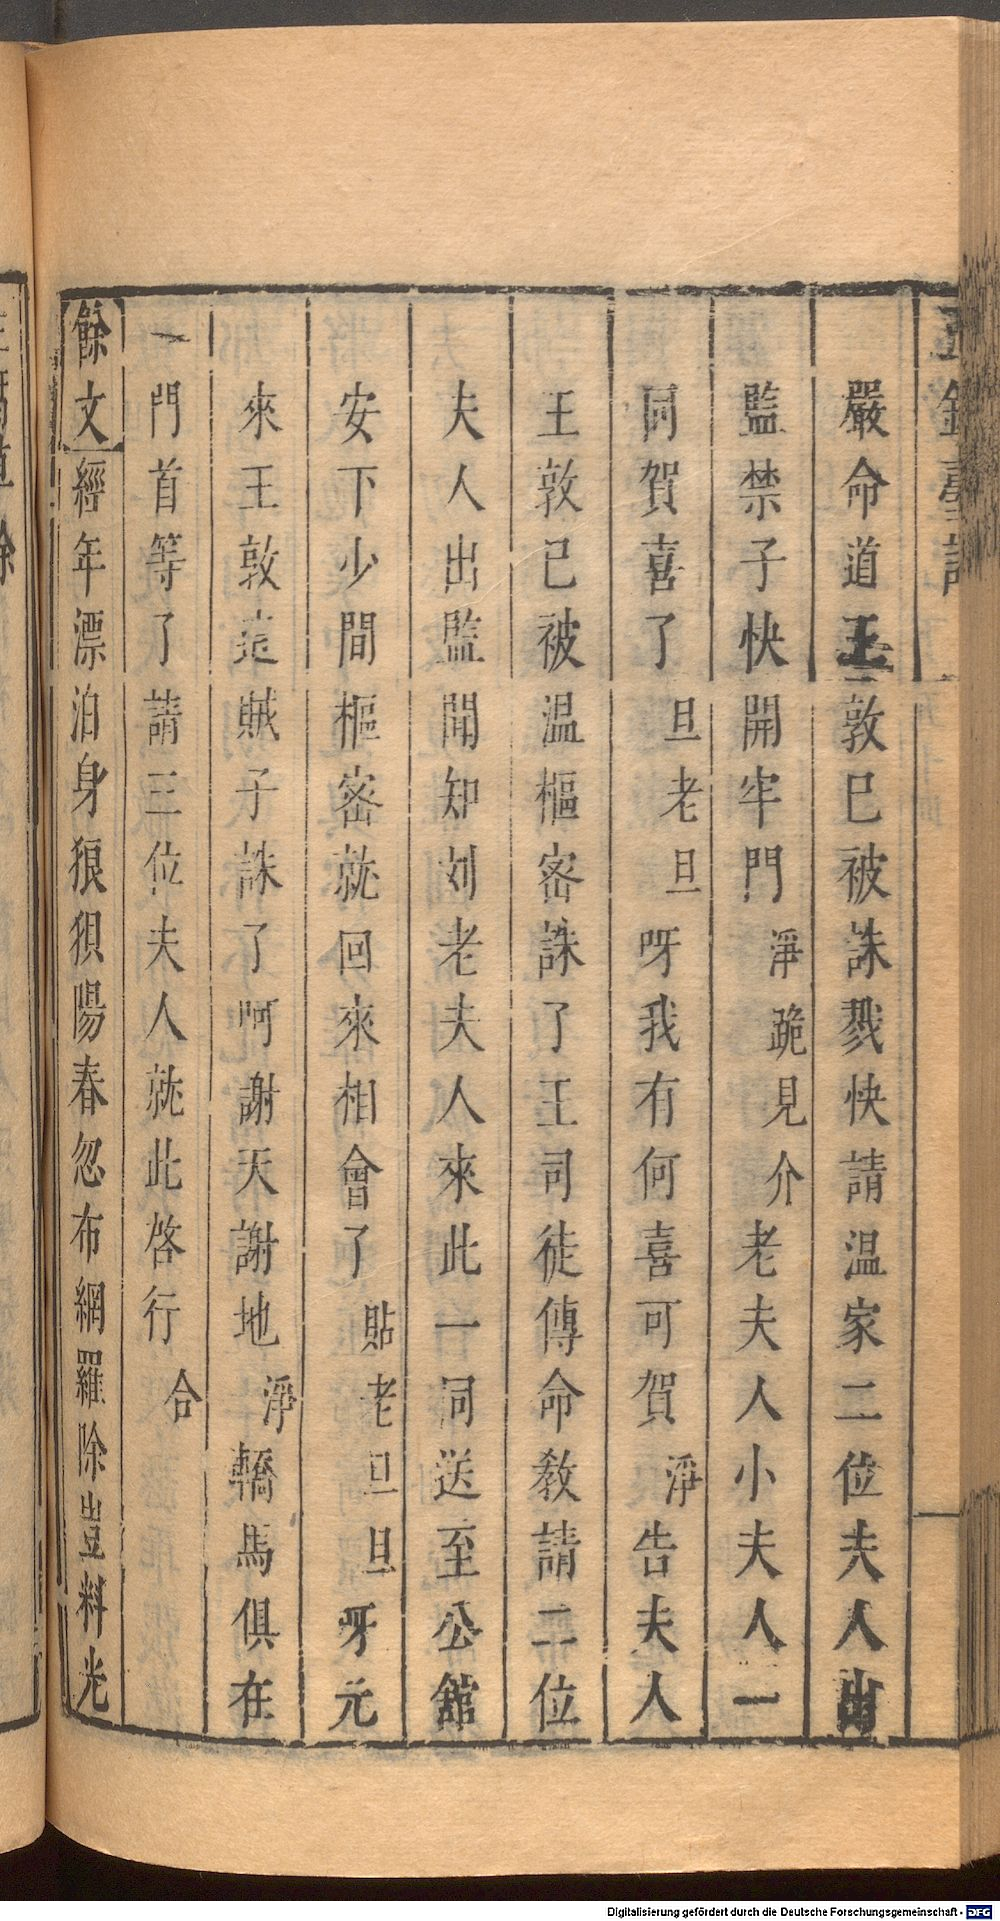 玉鏡臺記
嚴命道王敦巳被誅戮快請温家二位夫人出
監禁子快開牢門淨跪見介老夫人小夫人一
同賀喜了旦老旦呀我有何喜可賀淨告夫人
王敦已被温樞密誅了王司徒傳命教請二位
夫人出監聞知刘老夫人來此一同送至公舘
安下少間樞密就回來相會了貼老旦旦牙元
來王敦這賊子誅了呵謝天謝地淨轎馬俱在
門首等了請三位夫人就此啓行合
餘文經年漂泊身狼狽陽春忽布網羅除豈料光
一
Digitalisierung gefördert durch die Deutsche Forschungsgemeinschaft - DFG